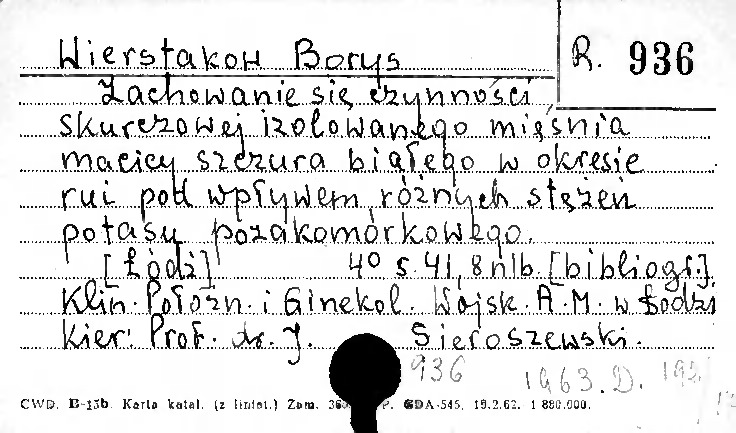 Wierstakow Borys
R. 936
Zachowanie się czynności
skurczowej izolowanego mięśnia
macicy szczura białego w okresie
rui pod wpływem różnych stężeń
potasu pozakomórkowego.
[Łódź] 4º s. 41, 8 nlb. [bibliogr.]
Klin. Położn. i Ginekol. Wojsk. A. M. w Łodzi
Kier: Prof. dr. J. Sieroszewski.
936 1963. D.
CWD. B-15b. Karta katal. (z liniat.) Zam. P. GDA-545. 19.2.62. 1 880.000.